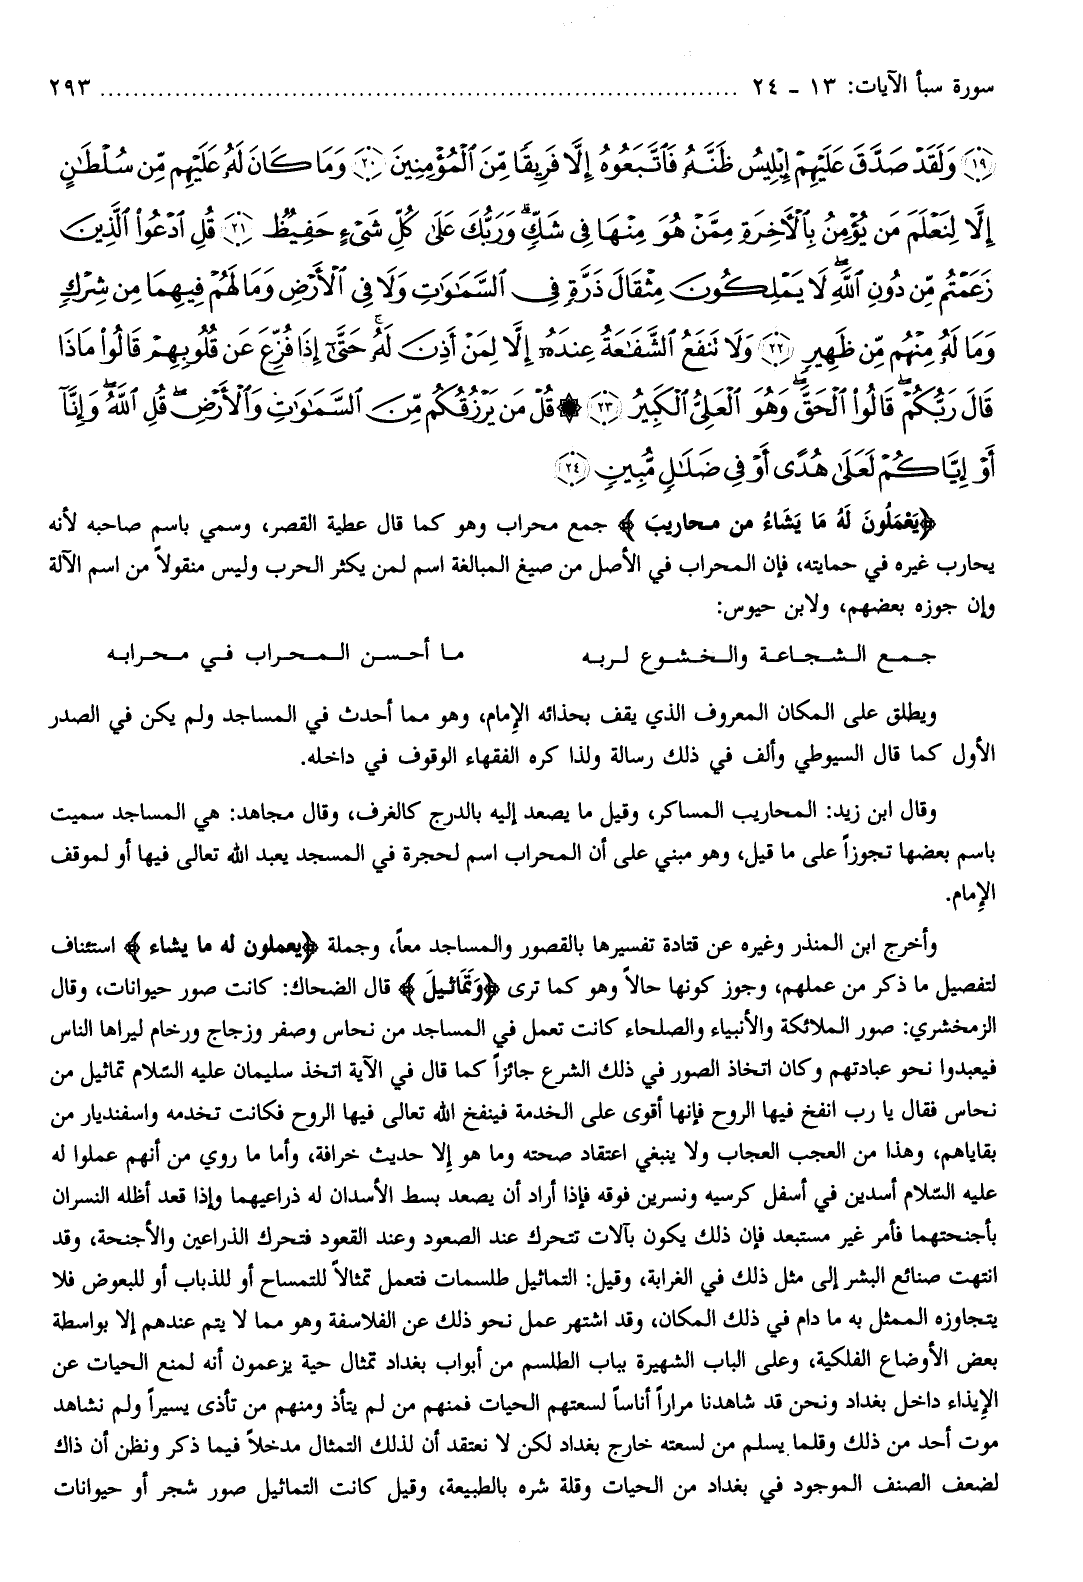 سورة سبأ الآيات: ١٣ - ٢٤ ................................................................................ ٢٩٣
﴿١٩﴾ وَلَقَدْ صَدَّقَ عَلَيْهِمْ إِبْلِيسُ ظَنَّهُۥ فَٱتَّبَعُوهُ إِلَّا فَرِيقًا مِّنَ ٱلْمُؤْمِنِينَ ﴿٢٠﴾ وَمَا كَانَ لَهُۥ عَلَيْهِم مِّن سُلْطَٰنٍ
إِلَّا لِنَعْلَمَ مَن يُؤْمِنُ بِٱلْءَاخِرَةِ مِمَّنْ هُوَ مِنْهَا فِى شَكٍّۗ وَرَبُّكَ عَلَىٰ كُلِّ شَىْءٍ حَفِيظٌ ﴿٢١﴾ قُلِ ٱدْعُوا۟ ٱلَّذِينَ
زَعَمْتُم مِّن دُونِ ٱللَّهِۖ لَا يَمْلِكُونَ مِثْقَالَ ذَرَّةٍ فِى ٱلسَّمَٰوَٰتِ وَلَا فِى ٱلْأَرْضِ وَمَا لَهُمْ فِيهِمَا مِن شِرْكٍ
وَمَا لَهُۥ مِنْهُم مِّن ظَهِيرٍ ﴿٢٢﴾ وَلَا تَنفَعُ ٱلشَّفَٰعَةُ عِندَهُۥٓ إِلَّا لِمَنْ أَذِنَ لَهُۥۚ حَتَّىٰٓ إِذَا فُزِّعَ عَن قُلُوبِهِمْ قَالُوا۟ مَاذَا
قَالَ رَبُّكُمْۖ قَالُوا۟ ٱلْحَقَّۖ وَهُوَ ٱلْعَلِىُّ ٱلْكَبِيرُ ﴿٢٣﴾ ۞ قُلْ مَن يَرْزُقُكُم مِّنَ ٱلسَّمَٰوَٰتِ وَٱلْأَرْضِۖ قُلِ ٱللَّهُۖ وَإِنَّآ
أَوْ إِيَّاكُمْ لَعَلَىٰ هُدًى أَوْ فِى ضَلَٰلٍ مُّبِينٍ ﴿٢٤﴾
﴿يَعْمَلُونَ لَهُ مَا يَشَاءُ من محاريبَ﴾ جمع محراب وهو كما قال عطية القصر، وسمي باسم صاحبه لأنه
يحارب غيره في حمايته، فإن المحراب في الأصل من صيغ المبالغة اسم لمن يكثر الحرب وليس منقولاً من اسم الآلة
وإن جوزه بعضهم، ولابن حيوس:
جمع الشجاعة والخشوع لربه ما أحسن المحراب في محرابه
ويطلق على المكان المعروف الذي يقف بحذائه الإمام، وهو مما أحدث في المساجد ولم يكن في الصدر
الأول كما قال السيوطي وألف في ذلك رسالة ولذا كره الفقهاء الوقوف في داخله.
وقال ابن زيد: المحاريب المساكر، وقيل ما يصعد إليه بالدرج كالغرف، وقال مجاهد: هي المساجد سميت
باسم بعضها تجوزاً على ما قيل، وهو مبني على أن المحراب اسم لحجرة في المسجد يعبد الله تعالى فيها أو لموقف
الإمام.
وأخرج ابن المنذر وغيره عن قتادة تفسيرها بالقصور والمساجد معاً، وجملة ﴿يعملون له ما يشاء﴾ استئناف
لتفصيل ما ذكر من عملهم، وجوز كونها حالاً وهو كما ترى ﴿وَتَمَاثيلَ﴾ قال الضحاك: كانت صور حيوانات، وقال
الزمخشري: صور الملائكة والأنبياء والصلحاء كانت تعمل في المساجد من نحاس وصفر وزجاج ورخام ليراها الناس
فيعبدوا نحو عبادتهم وكان اتخاذ الصور في ذلك الشرع جائزاً كما قال في الآية اتخذ سليمان عليه السّلام تماثيل من
نحاس فقال يا رب انفخ فيها الروح فإنها أقوى على الخدمة فينفخ الله تعالى فيها الروح فكانت تخدمه واسفنديار من
بقاياهم، وهذا من العجب العجاب ولا ينبغي اعتقاد صحته وما هو إلا حديث خرافة، وأما ما روي من أنهم عملوا له
عليه السّلام أسدين في أسفل كرسيه ونسرين فوقه فإذا أراد أن يصعد بسط الأسدان له ذراعيهما وإذا قعد أظله النسران
بأجنحتهما فأمر غير مستبعد فإن ذلك يكون بآلات تتحرك عند الصعود وعند القعود فتحرك الذراعين والأجنحة، وقد
انتهت صنائع البشر إلى مثل ذلك في الغرابة، وقيل: التماثيل طلسمات فتعمل تمثالاً للتمساح أو للذباب أو للبعوض فلا
يتجاوزه الممثل به ما دام في ذلك المكان، وقد اشتهر عمل نحو ذلك عن الفلاسفة وهو مما لا يتم عندهم إلا بواسطة
بعض الأوضاع الفلكية، وعلى الباب الشهيرة بباب الطلسم من أبواب بغداد تمثال حية يزعمون أنه لمنع الحيات عن
الإيذاء داخل بغداد ونحن قد شاهدنا مراراً أناساً لسعتهم الحيات فمنهم من لم يتأذ ومنهم من تأذى يسيراً ولم نشاهد
موت أحد من ذلك وقلما يسلم من لسعته خارج بغداد لكن لا نعتقد أن لذلك التمثال مدخلاً فيما ذكر ونظن أن ذاك
لضعف الصنف الموجود في بغداد من الحيات وقلة شره بالطبيعة، وقيل كانت التماثيل صور شجر أو حيوانات